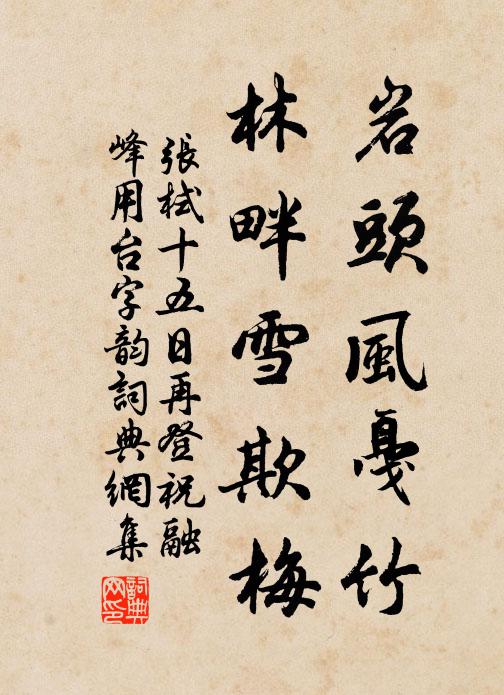 岩頭風戛竹
林畔雪欺梅
張栻十五日再登祝融
峰用台字韵詞典網集
詞典网印